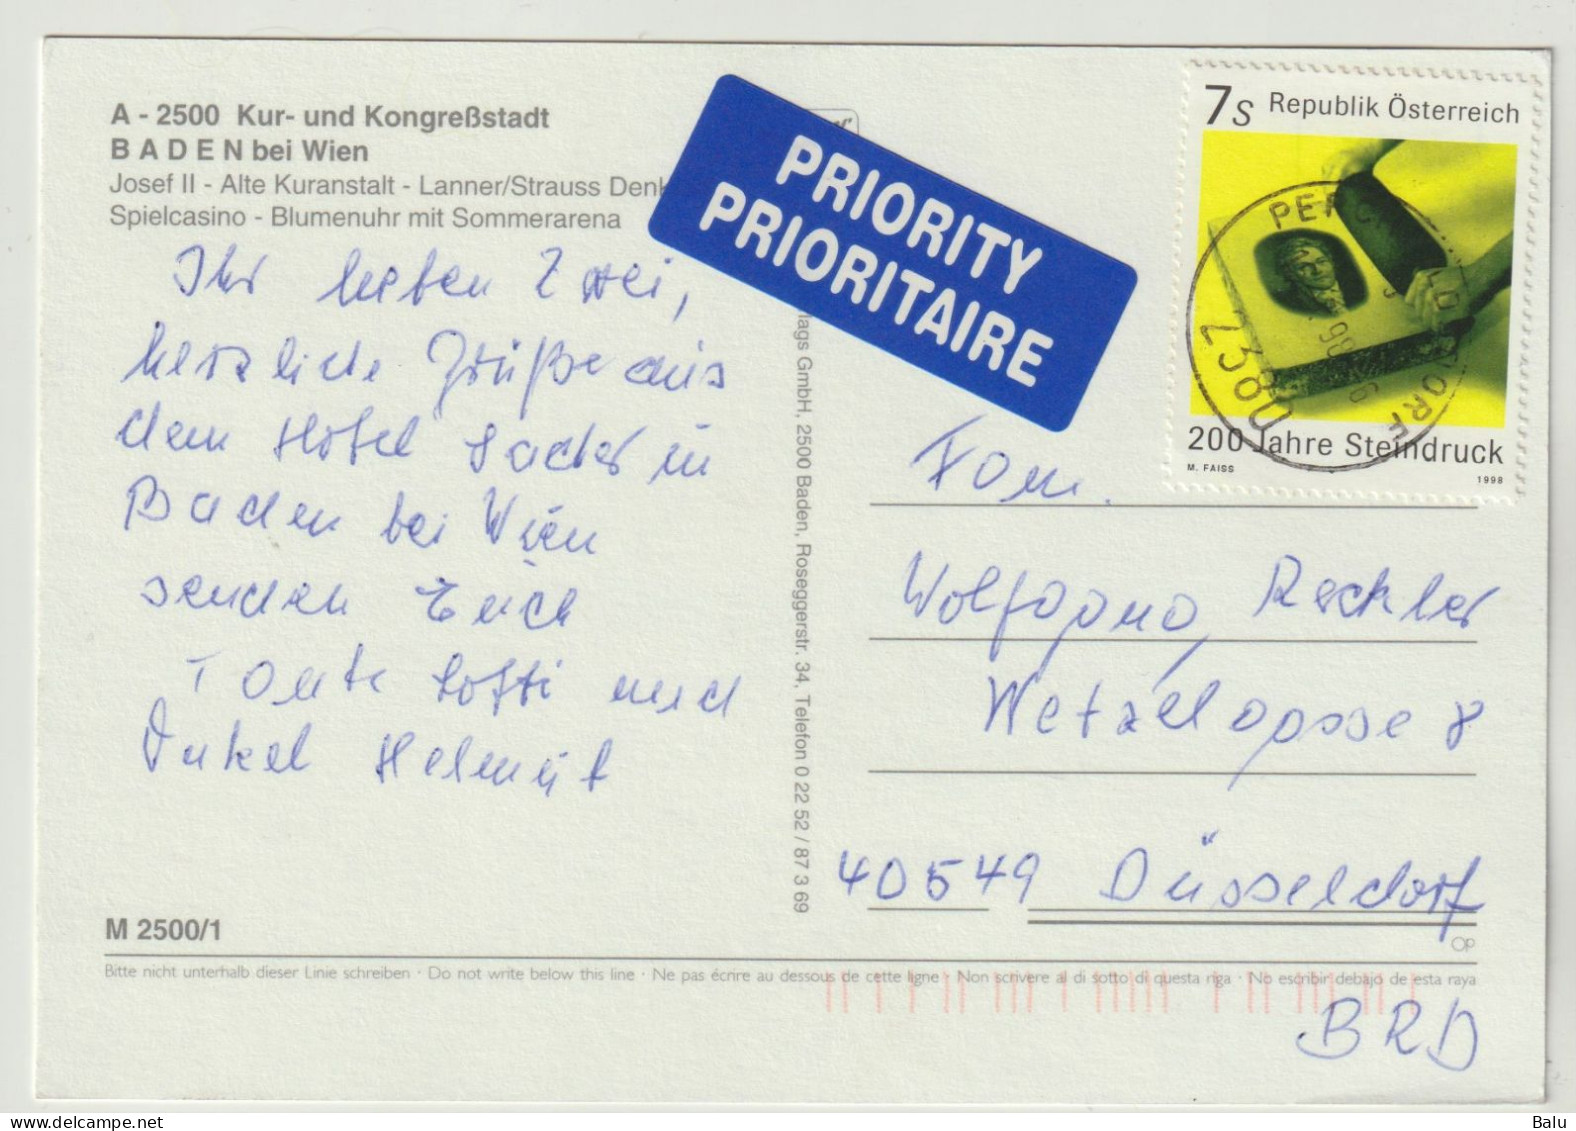 A - 2500 Kur- und Kongreßstadt
B A D E N bei Wien
Josef II - Alte Kuranstalt - Lanner/Strauss Denk
Spielcasino - Blumenuhr mit Sommerarena
Ihr lieben Zwei,
herzliche Grüße aus
dem Hotel Sacher in
Baden bei Wien
senden Euch
Tante Lotti und
Onkel Helmut
M 2500/1
Bitte nicht unterhalb dieser Linie schreiben · Do not write below this line · Ne pas écrire au dessous de cette ligne · Non scrivere al di sotto di questa riga · No escribir debajo de esta raya
PRIORITY
PRIORITAIRE
lags GmbH, 2500 Baden, Roseggerstr. 34, Telefon 0 22 52 / 87 3 69
7s Republik Österreich
200 Jahre Steindruck
M. FAISS 1998
2380
Fam.
Wolfgang
Wetzelgasse 8
40549 Düsseldorf
OP
BRD
Balu